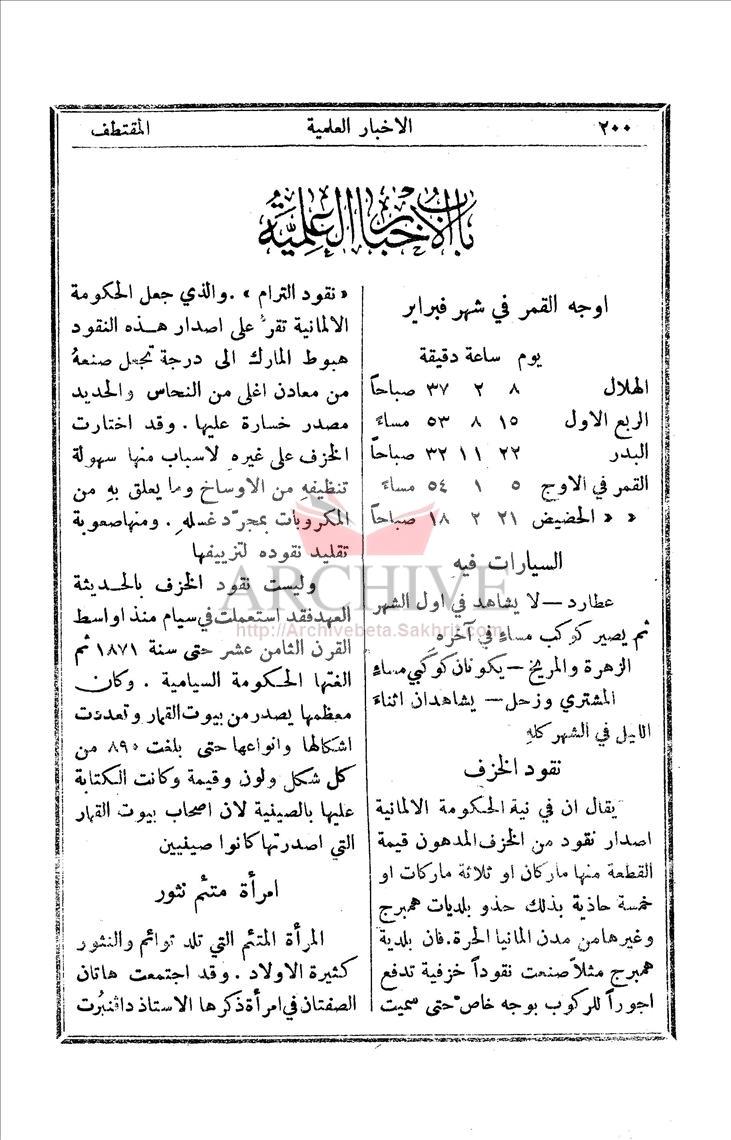 ٢٠٠
الاخبار العلمية
المقتطف
باب الاخبار العلمية
اوجه القمر في شهر فبراير
يوم ساعة دقيقة
الهلال ٨ ٢ ٣٧ صباحاً
الربع الاول ١٥ ٨ ٥٣ مساءً
البدر ٢٢ ١١ ٣٢ صباحاً
القمر في الاوج ٥ ١ ٥٤ مساءً
« « الحضيض ٢١ ٢ ١٨ صباحاً
السيارات فيه
عطارد — لا يشاهد في اول الشهر
ثم يصير كوكب مساءٍ في آخره
الزهرة والمريخ — يكونان كوكبي مساءٍ
المشتري وزحل — يشاهدان اثناءَ
الليل في الشهر كلهِ
نقود الخزف
يقال ان في نية الحكومة الالمانية
اصدار نقود من الخزف المدهون قيمة
القطعة منها ماركان او ثلاثة ماركات او
خمسة حاذية بذلك حذو بلديات همبرج
وغيرها من مدن المانيا الحرة. فان بلدية
همبرج مثلاً صنعت نقوداً خزفية تدفع
اجوراً للركوب بوجه خاص حتى سميت
« نقود الترام » . والذي جعل الحكومة
الالمانية تقرّ على اصدار هذه النقود
هبوط المارك الى درجة تجعل صنعهُ
من معادن اغلى من النحاس والحديد
مصدر خسارة عليها . وقد اختارت
الخزف على غيره لاسباب منها سهولة
تنظيفهِ من الاوساخ وما يعلق بهِ من
المكروبات بمجرّد غسلهِ . ومنها صعوبة
تقليد نقوده لتزييفها
وليست نقود الخزف بالحديثة
العهد فقد استعملت في سيام منذ اواسط
القرن الثامن عشر حتى سنة ١٨٧١ ثم
الغتها الحكومة السيامية . وكان
معظمها يصدر من بيوت القمار وتعددت
اشكالها وانواعها حتى بلغت ٨٩٠ من
كل شكل ولون وقيمة وكانت الكتابة
عليها بالصينية لان اصحاب بيوت القمار
التي اصدرتها كانوا صينيين
امرأة متئم نثور
المرأة المتئم التي تلد توائم والنثور
كثيرة الاولاد . وقد اجتمعت هاتان
الصفتان في امرأة ذكرها الاستاذ دافنبُرت
ARCHIVE
http://Archivebeta.Sakhrit.com